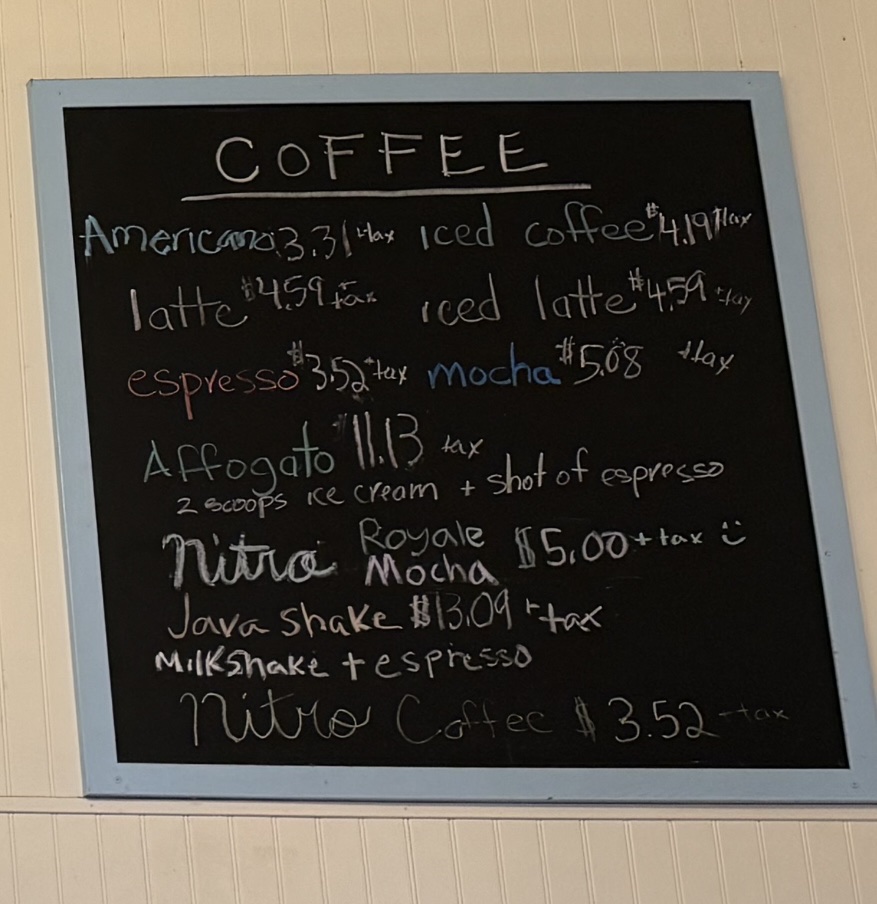 COFFEE
Americano 3.31 +tax iced coffee $4.19 +tax
latte $4.59 +tax iced latte $4.59 +tax
espresso $3.52 +tax mocha $5.08 +tax
Affogato $11.13 tax
2 scoops ice cream + shot of espresso
Nitro Royale Mocha $5.00 + tax :)
Java Shake $13.09 + tax
Milkshake + espresso
Nitro Coffee $3.52 +tax